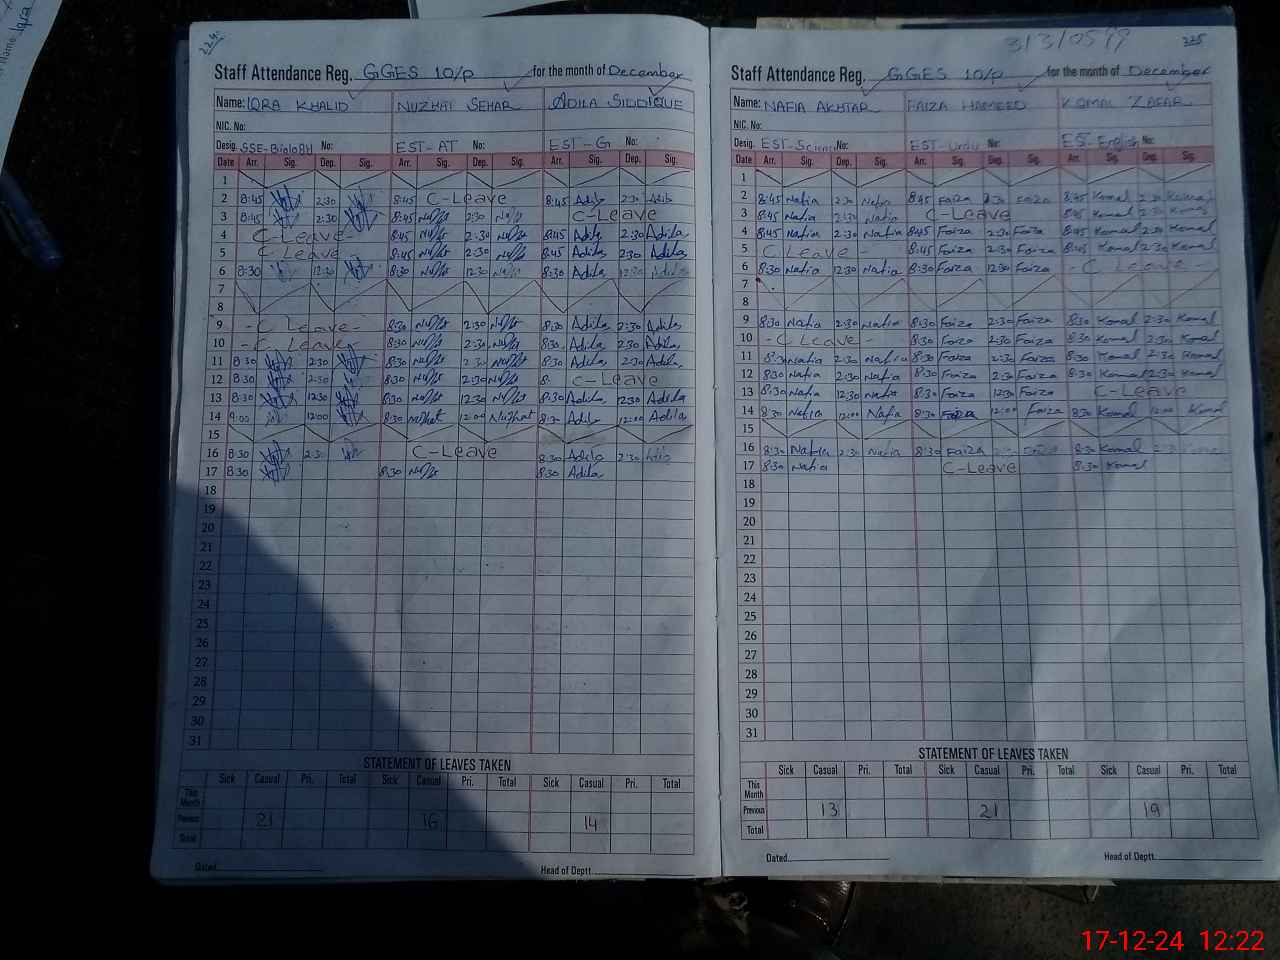 Iqra
Name:
224
Staff Attendance Reg. GGES 10/P for the month of December
Name: IQRA KHALID NUZHAT SEHAR ADILA SIDDIQUE
NIC. No:
Desig. SSE-Biology No: EST-AT No: EST-G No:
Date Arr. Sig. Dep. Sig. Arr. Sig. Dep. Sig. Arr. Sig. Dep. Sig.
1
2 8:45 2:30 8:45 C-Leave 8:45 Adila 2:30 Adila
3 8:45 2:30 8:45 2:30 C-Leave
4 C-Leave- 8:45 2:30 8:45 Adila 2:30 Adila
5 C-Leave 8:45 2:30 8:45 Adila 2:30 Adila
6 8:30 12:30 8:30 12:30 8:30 Adila 12:30 Adila
7
8
9 -C Leave- 8:30 2:30 8:30 Adila 2:30 Adila
10 -C Leave- 8:30 2:30 8:30 Adila 2:30 Adila
11 8:30 2:30 8:30 2:30 8:30 Adila 2:30 Adila
12 8:30 2:30 8:30 2:30 8: C-Leave
13 8:30 12:30 8:30 12:30 8:30 Adila 12:30 Adila
14 9:00 12:00 8:30 Nuzhat 12:00 Nuzhat 8:30 Adila 12:00 Adila
15
16 8:30 2:30 C-Leave 8:30 Adila 2:30 Adila
17 8:30 8:30 8:30 Adila
18
19
20
21
22
23
24
25
26
27
28
29
30
31
STATEMENT OF LEAVES TAKEN
Sick Casual Pri. Total Sick Casual Pri. Total Sick Casual Pri. Total
This Month
Previous 21 16 14
Total
Dated Head of Deptt.
31310599
225
Staff Attendance Reg. GGES 10/P for the month of December
Name: NAFIA AKHTAR FAIZA HAMEED KOMAL ZAFAR
NIC. No:
Desig. EST-Science No: EST-Urdu No: ES-English No:
Date Arr. Sig. Dep. Sig. Arr. Sig. Dep. Sig. Arr. Sig. Dep. Sig.
1
2 8:45 Nafia 2:30 Nafia 8:45 Faiza 2:30 Faiza 8:45 Komal 2:30 Komal
3 8:45 Nafia 2:30 Nafia C-Leave 8:45 Komal 2:30 Komal
4 8:45 Nafia 2:30 Nafia 8:45 Faiza 2:30 Faiza 8:45 Komal 2:30 Komal
5 C Leave - 8:45 Faiza 2:30 Faiza 8:45 Komal 2:30 Komal
6 8:30 Nafia 12:30 Nafia 8:30 Faiza 12:30 Faiza - C Leave
7
8
9 8:30 Nafia 2:30 Nafia 8:30 Faiza 2:30 Faiza 8:30 Komal 2:30 Komal
10 -C Leave - 8:30 Faiza 2:30 Faiza 8:30 Komal 2:30 Komal
11 8:30 Nafia 2:30 Nafia 8:30 Faiza 2:30 Faiza 8:30 Komal 2:30 Komal
12 8:30 Nafia 2:30 Nafia 8:30 Faiza 2:30 Faiza 8:30 Komal 2:30 Komal
13 8:30 Nafia 12:30 Nafia 8:30 Faiza 12:30 Faiza C-Leave
14 8:30 Nafia 12:00 Nafia 8:30 Faiza 12:00 Faiza 8:30 Komal 12:00 Komal
15
16 8:30 Nafia 2:30 Nafia 8:30 Faiza Faiza 8:30 Komal
17 8:30 Nafia C-Leave 8:30 Komal
18
19
20
21
22
23
24
25
26
27
28
29
30
31
STATEMENT OF LEAVES TAKEN
Sick Casual Pri. Total Sick Casual Pri. Total Sick Casual Pri. Total
This Month
Previous 13 21 19
Total
Dated Head of Deptt.
17-12-24 12:22